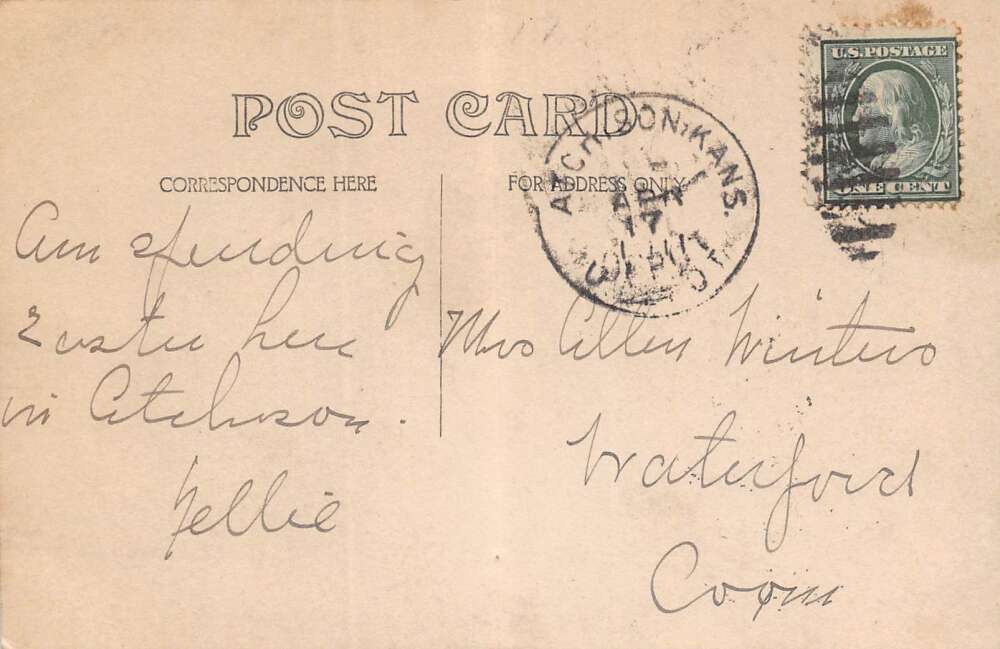 POST CARD
CORRESPONDENCE HERE
FOR ADDRESS ONLY
U.S. POSTAGE
ONE CENT
ATCHISON, KANS.
Am spending
Easter here
in Atchison.
Nellie
Mrs Allen Winters
Waterford
Conn